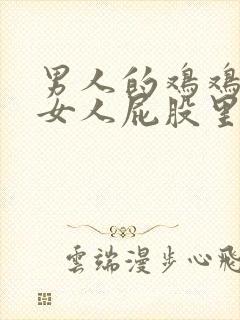 男人的鸡鸡
女人屁股里
雲端漫步心飛